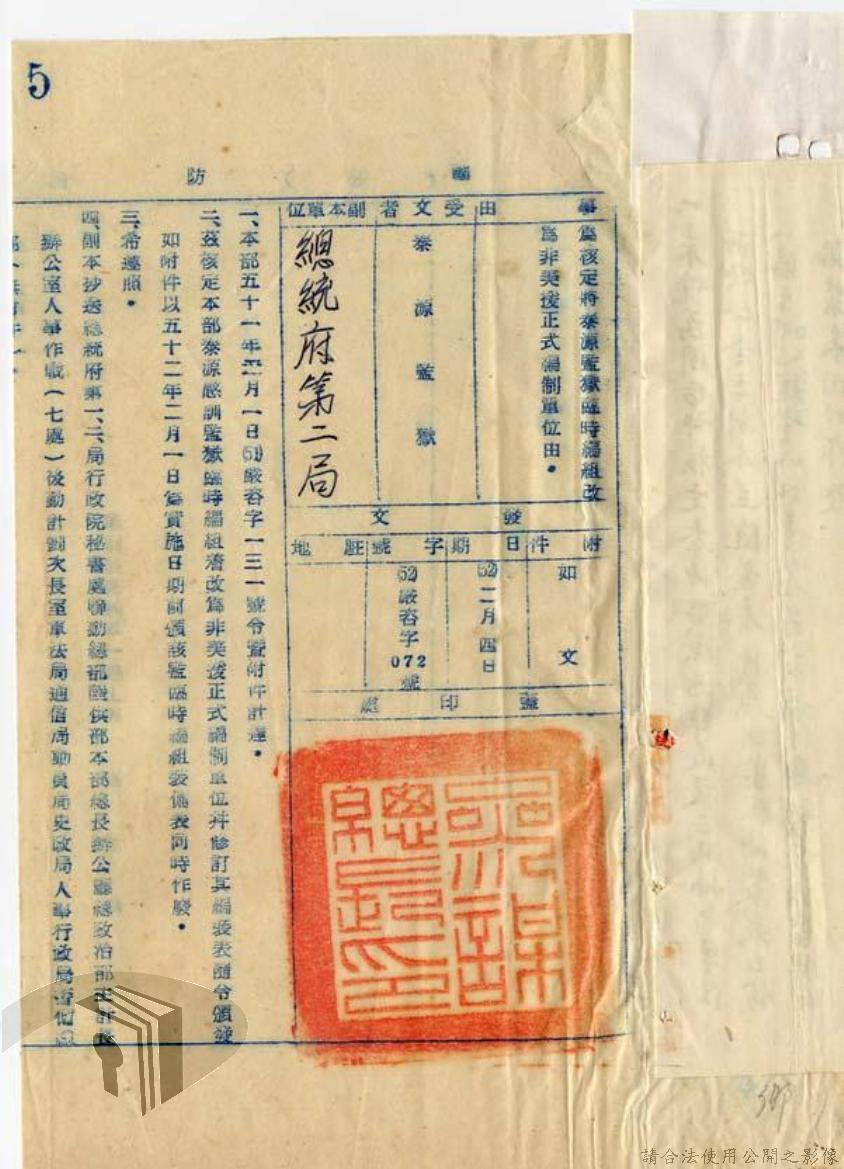 5
防
事
由
受文者
副本單位
為核定將泰源監獄臨時編組改
為非美援正式編制單位由。
泰源監獄
總統府第二局
發文
附件
日期
字號
駐地
如文
(52)二月四日
(52)嚴吞字072號
蓋印處
一、本部五十一年 月一日(51)嚴吞字一三一號令暨附件計達。
二、茲核定本部泰源感訓監獄臨時編組着改為非美援正式編制單位并修訂其編裝表隨令頒發
如附件以五十二年二月一日為實施日期前頒該監臨時編組裝備表同時作廢。
三、希遵照。
四、副本抄送總統府第一、二局行政院秘書處聯勤總部 供部本部總長辦公廳總政治部主計長
辦公室人事作戰(七處)後勤計劃次長室軍法局通信局動員局史政局人事行政局
參謀總長印
鄉
請合法使用公開之影像